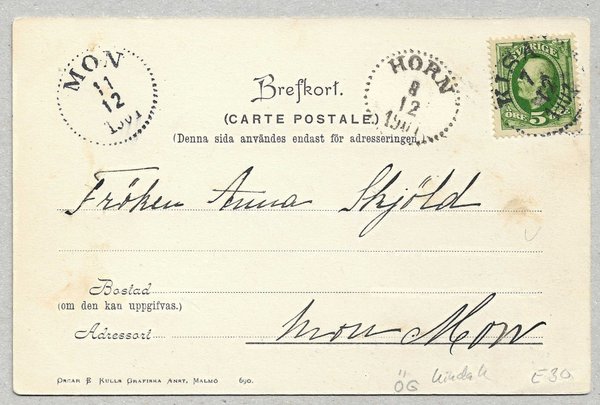 MON
11
12
1901
HORN
8
12
1901
KISA
7
12
1901
SVERIGE
ÖRE 5
Brefkort.
(CARTE POSTALE.)
(Denna sida användes endast för adresseringen.)
Fröken Anna Skjöld
Bostad
(om den kan uppgifvas.)
Adressort
mon Mon
OSCAR E. KULLS GRAFISKA ANST. MALMÖ 690.
ÖG
E 30